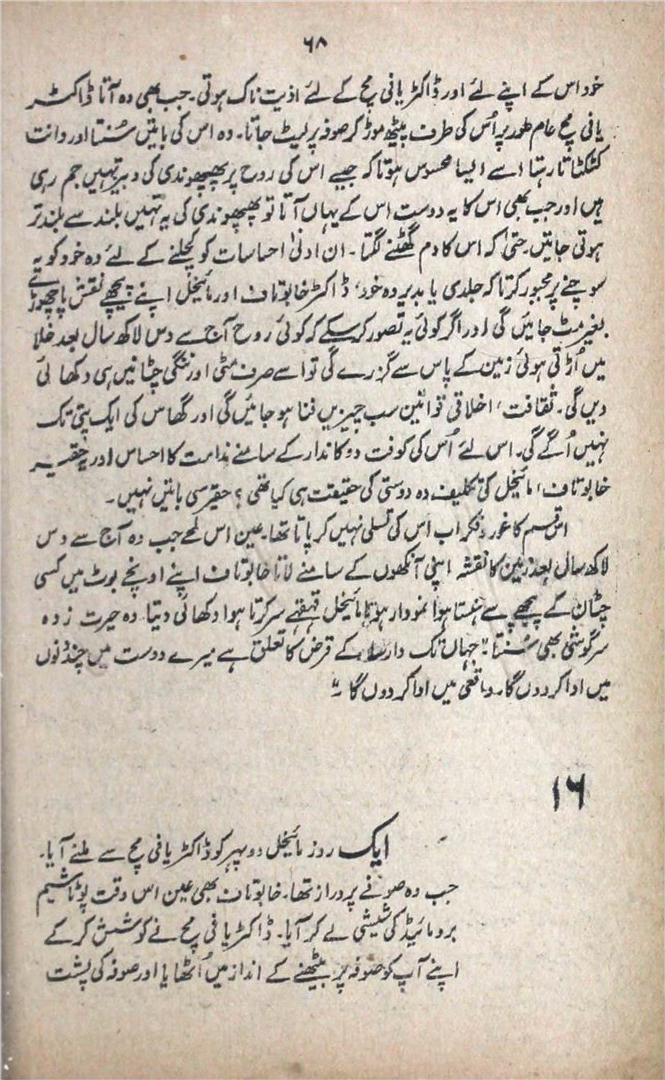 ۶۸
خود اس کے اپنے لئے اور ڈاکٹر یافی مچ کے لئے اذیت ناک ہوتی۔ جب بھی وہ آتا ڈاکٹر
یافی مچ عام طور پر اُس کی طرف پیٹھ موڑ کر صوفہ پر لیٹ جاتا۔ وہ اس کی باتیں سُنتا اور دانت
کٹکٹاتا رہتا اسے ایسا محسوس ہوتا کہ جیسے اس کی روح پر پھپھوندی کی دبیز تہیں جم رہی
ہیں اور جب بھی اس کا یہ دوست اس کے یہاں آتا تو پھپھوندی کی یہ تہیں بلند سے بلند تر
ہوتی جاتیں حتیٰ کہ اس کا دم گھٹنے لگتا۔ ان ادنیٰ احساسات کو کچلنے کے لئے وہ خود کو یہ
سوچنے پر مجبور کرتا کہ جلدی یا بدیر وہ خود، ڈاکٹر خابوتاف اور مائیخل اپنے پیچھے نقشِ پا چھوڑے
بغیر مٹ جائیں گی اور اگر کوئی یہ تصور کر سکے کہ کوئی روح آج سے دس لاکھ سال بعد خلا
میں اُڑتی ہوئی زمین کے پاس سے گزرے گی تو اسے صرف مٹی اور ننگی چٹانیں ہی دکھائی
دیں گی۔ ثقافت، اخلاقی قوانین سب چیزیں فنا ہو جائیں گی اور گھاس کی ایک پتی تک
نہیں اُگے گی۔ اس لئے اُس کی کوفت دوکاندار کے سامنے ندامت کا احساس اور یہ حقیر
خابوتاف، مائیخل کی تکلیف دہ دوستی کی حقیقت ہی کیا تھی؟ حقیر سی باتیں نہیں۔
اس قسم کا غور و فکر اب اس کی تسلی نہیں کر پاتا تھا۔ عین اس لمحے جب وہ آج سے دس
لاکھ سال بعد زمین کا نقشہ اپنی آنکھوں کے سامنے لاتا خابوتاف اپنے اونچے بوٹ میں کسی
چٹان کے پیچھے سے ہنستا ہوا نمودار ہوتا یا مائیخل قہقہے سر کرتا ہوا دکھائی دیتا۔ وہ حیرت زدہ
سرگوشی بھی سُنتا۔ "جہاں تک وارسا کے قرض کا تعلق ہے میرے دوست میں چند دنوں
میں ادا کر دوں گا۔ واقعی میں ادا کر دوں گا۔"
۱۶
ایک روز مائیخل دوپہر کو ڈاکٹر یافی مچ سے ملنے آیا۔
جب وہ صوفے پر دراز تھا۔ خابوتاف بھی عین اس وقت پوٹاشیم
برومائیڈ کی شیشی لے کر آیا۔ ڈاکٹر یافی مچ نے کوشش کر کے
اپنے آپ کو صوفہ پر بیٹھنے کے انداز میں اُٹھایا اور صوفہ کی پشت